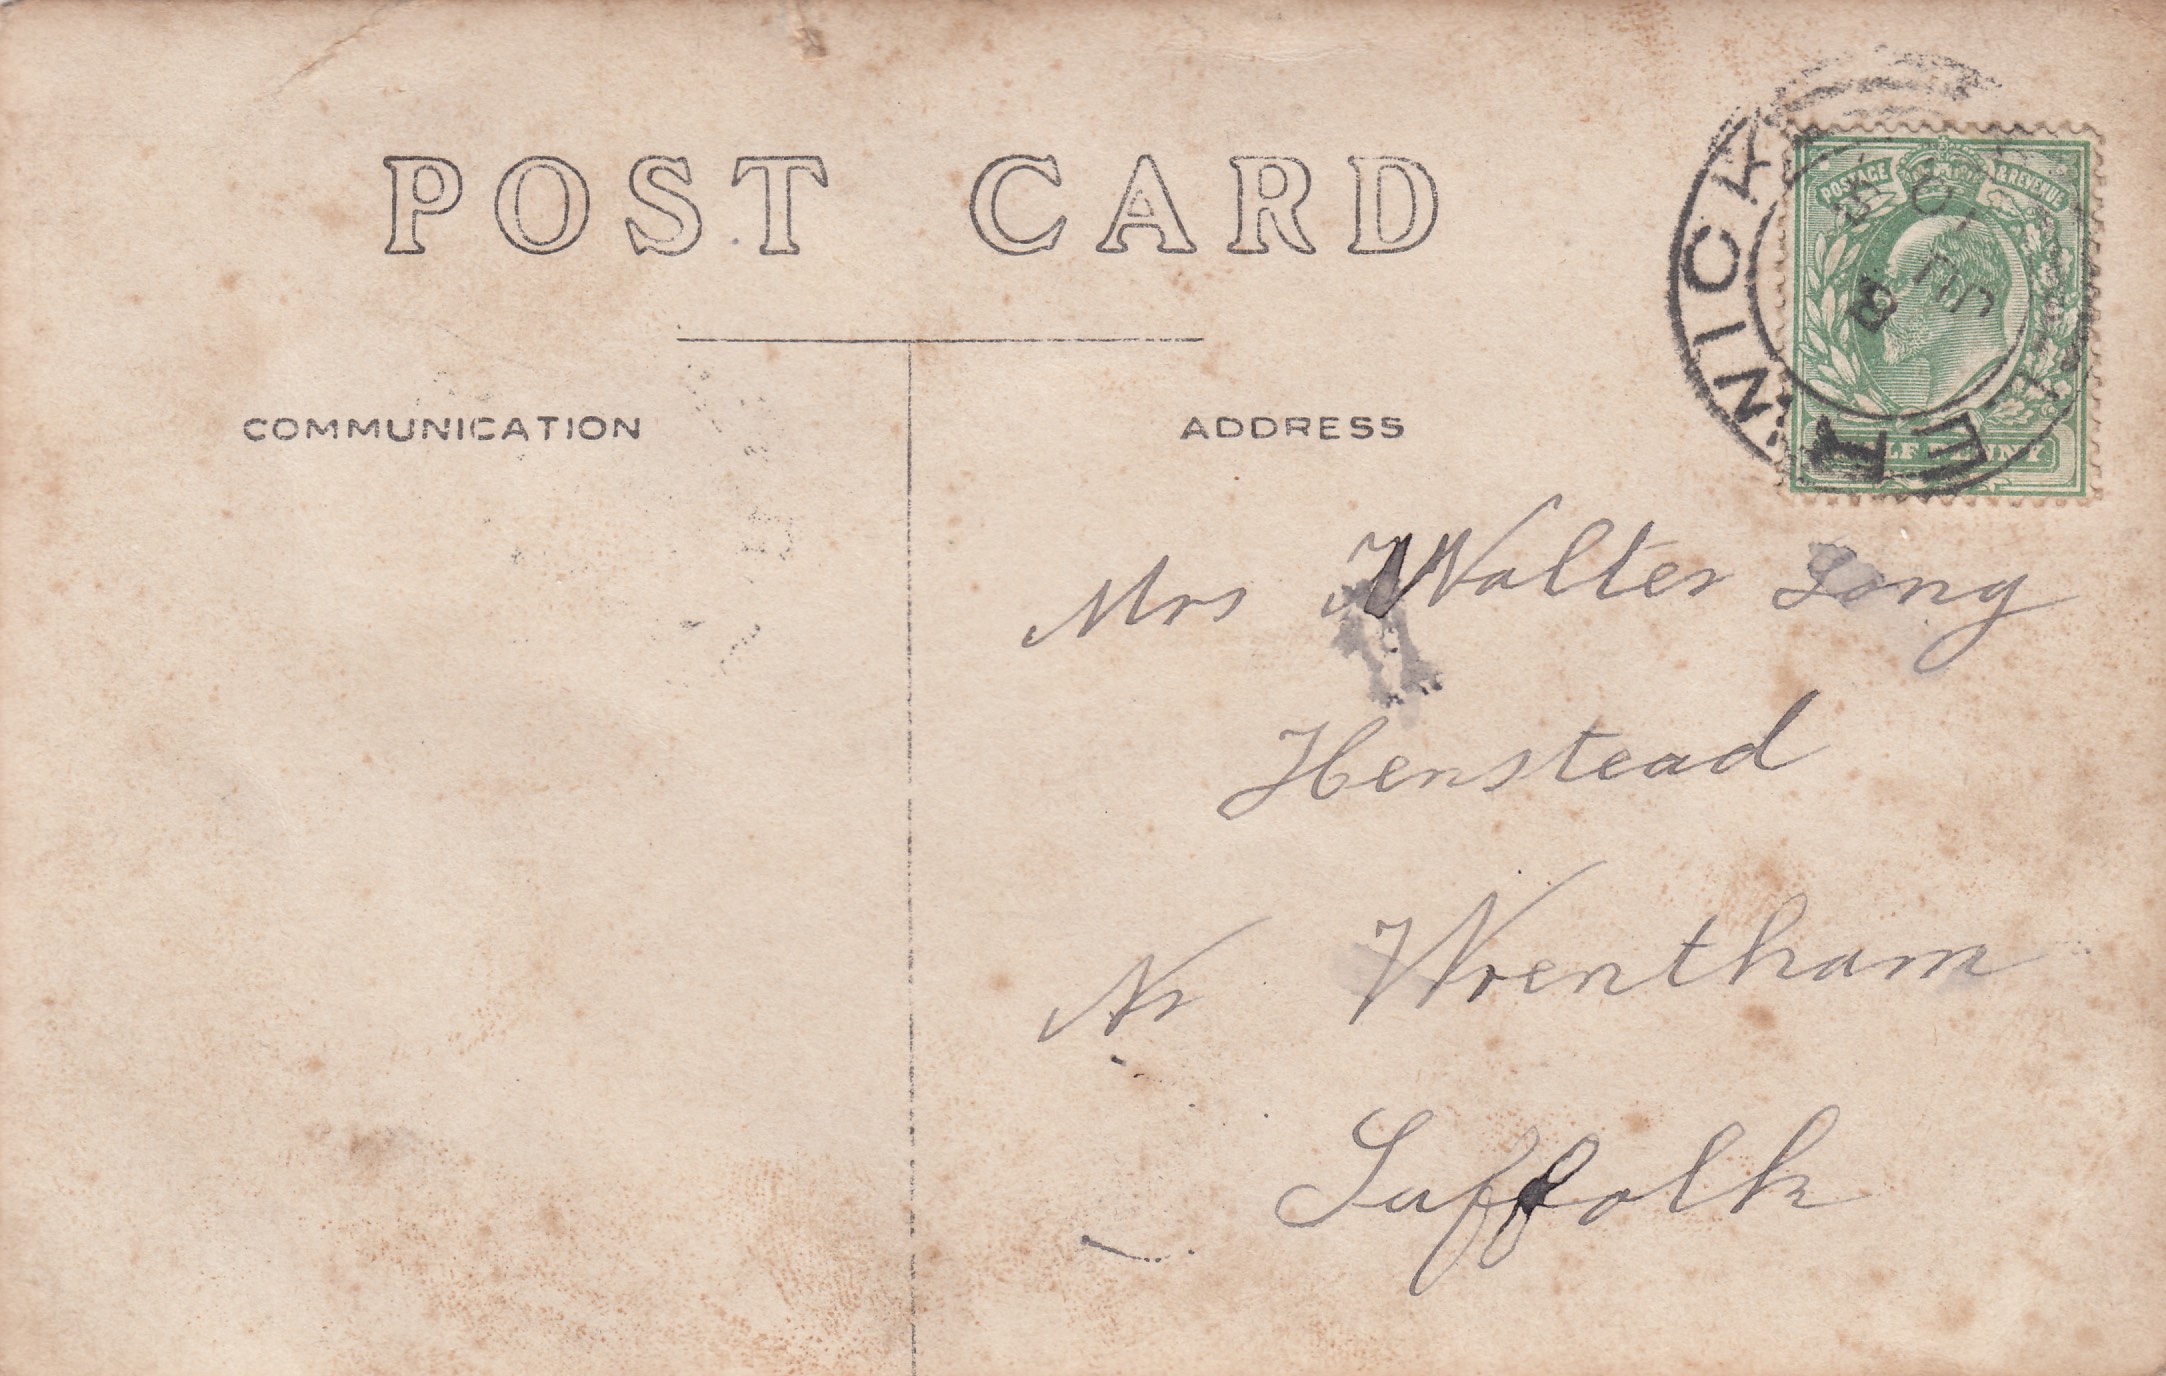 POST CARD
COMMUNICATION
ADDRESS
POSTAGE & REVENUE
HALFPENNY
Mrs Walter Long
Henstead
Nr Wrentham
Suffolk